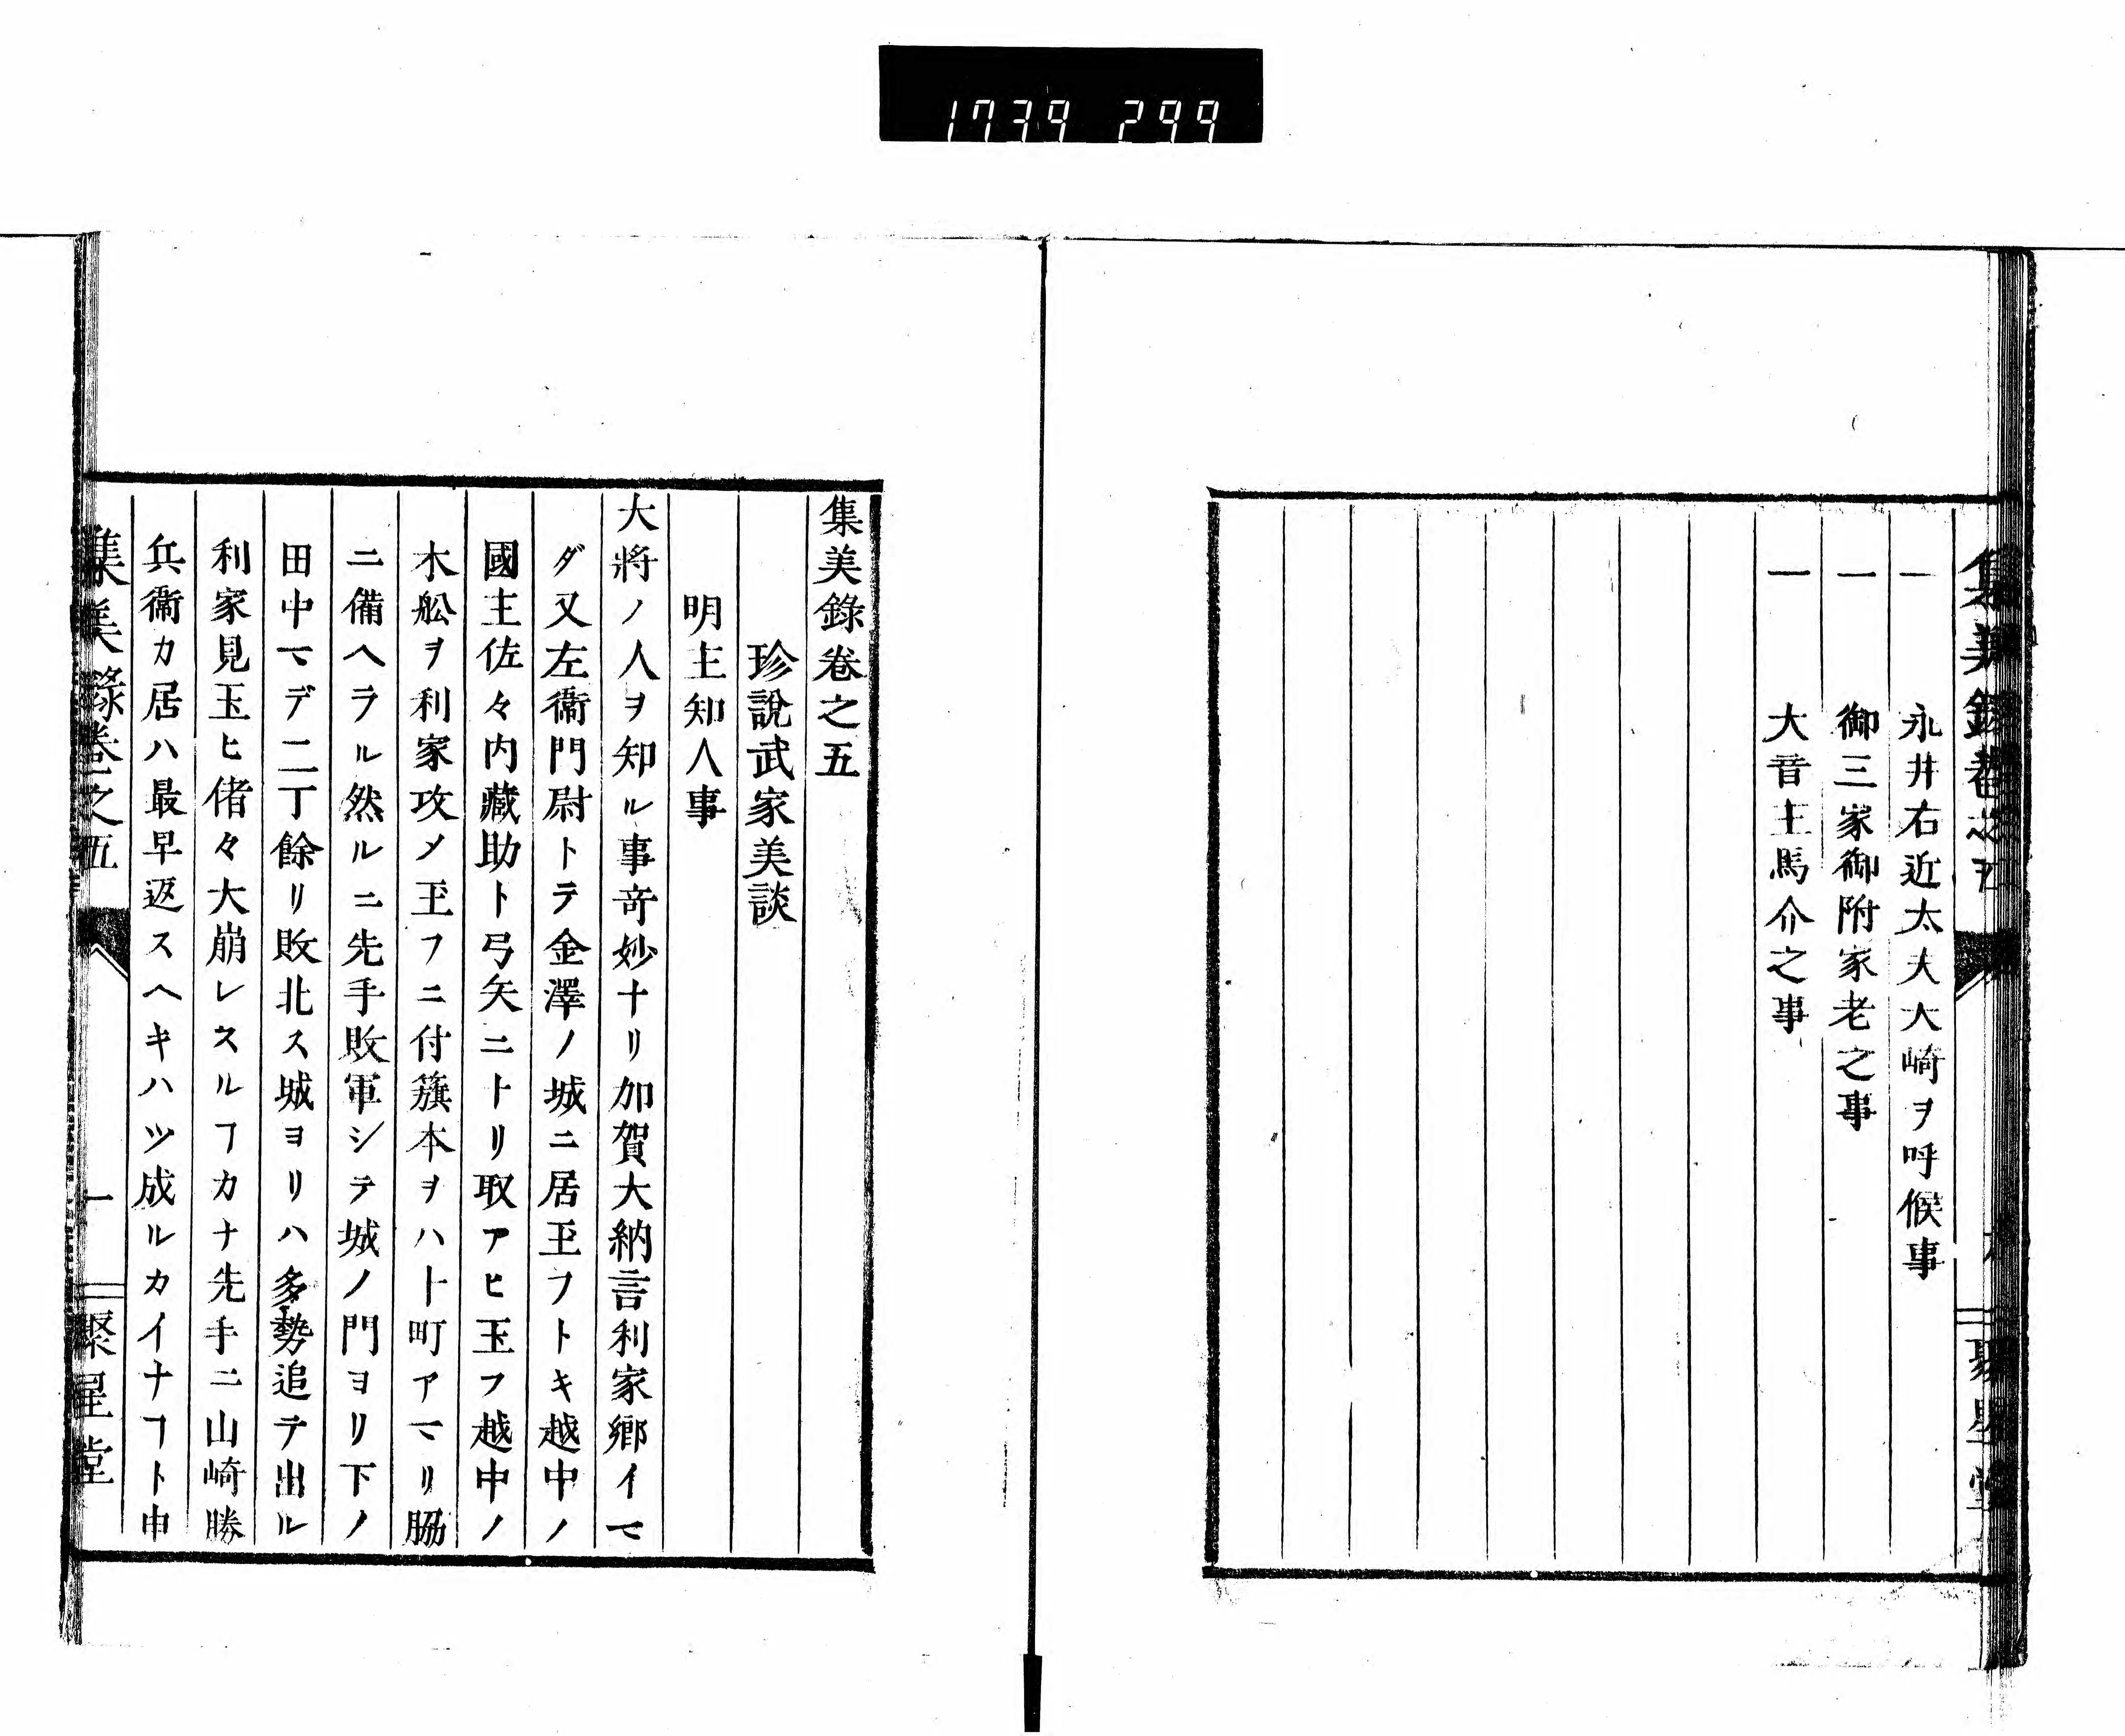 1739 299
集美錄卷之五
聚星堂
一 永井右近太夫大崎ヲ呼候事
一 御三家御附家老之事
一 大音主馬介之事
集美錄卷之五
珍說武家美談
明主知人事
大將ノ人ヲ知ル事竒妙ナリ加賀大納言利家鄉イマ
ダ又左衞門尉トテ金澤ノ城ニ居玉フトキ越中ノ
國主佐々内藏助ト弓矢ニトリ取アヒ玉フ越中ノ
木舩ヲ利家攻メ玉フニ付籏本ヲハ卜町アマリ脇
ニ備ヘラル然ルニ先手敗軍シテ城ノ門ヨリ下ノ
田中マデ二丁餘リ敗北ス城ヨリハ多勢追テ出ル
利家見玉ヒ偖々大崩レスルヿカナ先手ニ山崎勝
兵衞カ居ハ最早返スヘキハツ成ルカイナヿト申
集美錄卷之五
一
聚星堂